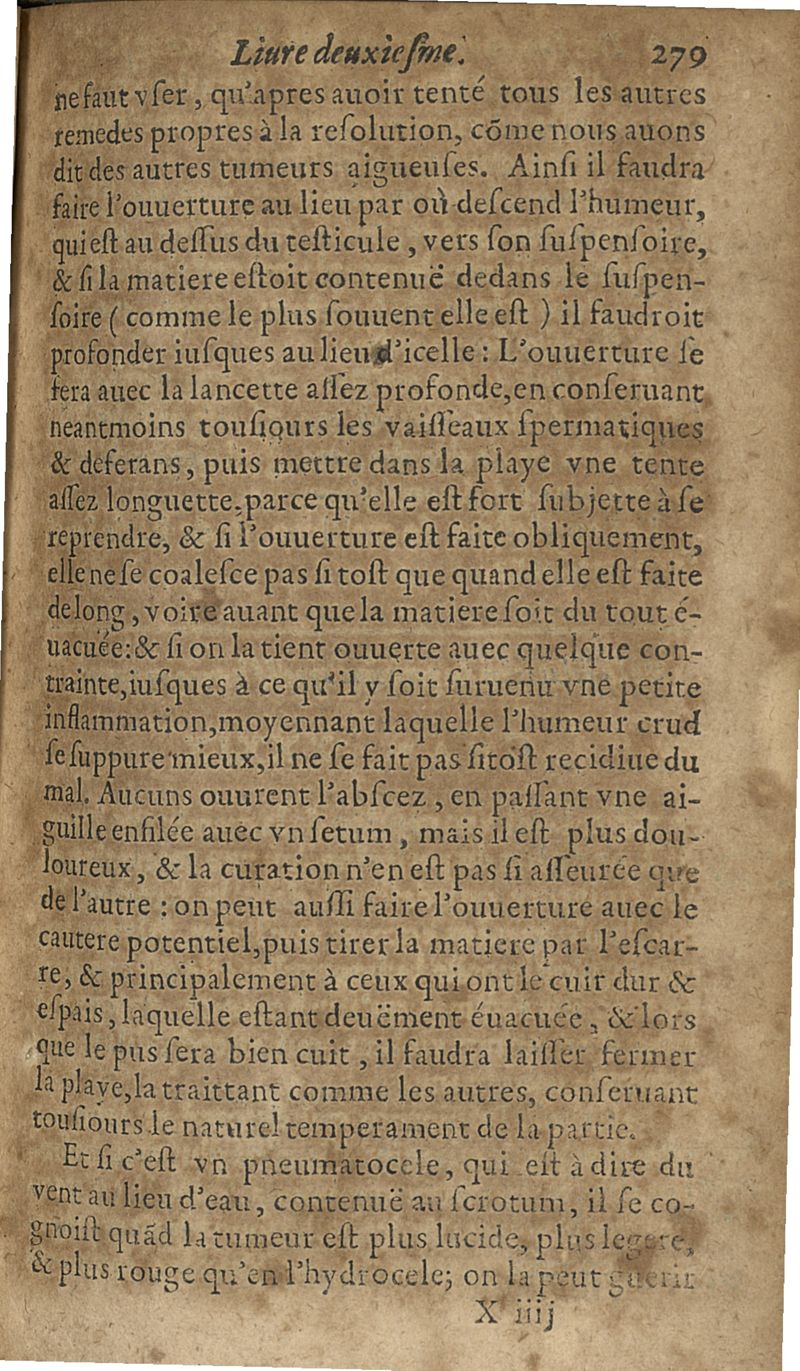 Liure deuxiesme. 279
ne faut vſer, qu'apres auoir tenté tous les autres
remedes propres à la reſolution, cõme nous auons
dit des autres tumeurs aigueuſes. Ainſi il faudra
faire l'ouuerture au lieu par où deſcend l'humeur,
qui eſt au deſſus du teſticule, vers ſon ſuſpenſoire,
& ſi la matiere eſtoit contenuë dedans le ſuſpen-
ſoire ( comme le plus ſouuent elle eſt ) il faudroit
profonder iuſques au lieu d'icelle : L'ouuerture ſe
fera auec la lancette aſſez profonde, en conſeruant
neantmoins touſiours les vaiſſeaux ſpermatiques
& deferans, puis mettre dans la playe vne tente
aſſez longuette, parce qu'elle eſt fort ſubjette à ſe
reprendre, & ſi l'ouuerture eſt faite obliquement,
elle ne ſe coaleſce pas ſi toſt que quand elle eſt faite
de long, voire auant que la matiere ſoit du tout é-
uacuée: & ſi on la tient ouuerte auec quelque con-
trainte, iuſques à ce qu'il y ſoit ſuruenu vne petite
inflammation, moyennant laquelle l'humeur crud
ſe ſuppure mieux, il ne ſe fait pas ſitoſt recidiue du
mal. Aucuns ouurent l'abſcez, en paſſant vne ai-
guille enfilée auec vn ſetum, mais il eſt plus dou-
loureux, & la curation n'en eſt pas ſi aſſeurée que
de l'autre : on peut auſſi faire l'ouuerture auec le
cautere potentiel, puis tirer la matiere par l'eſcar-
re, & principalement à ceux qui ont le cuir dur &
eſpais, laquelle eſtant deuëment éuacuée, & lors
que le pus ſera bien cuit, il faudra laiſſer fermer
la playe, la traittant comme les autres, conſeruant
touſiours le naturel temperament de la partie.
Et ſi c'eſt vn pneumatocele, qui eſt à dire du
vent au lieu d'eau, contenuë au ſcrotum, il ſe co-
gnoiſt quãd la tumeur eſt plus lucide, plus legere,
& plus rouge qu'en l'hydrocele; on la peut guerir
X iiij